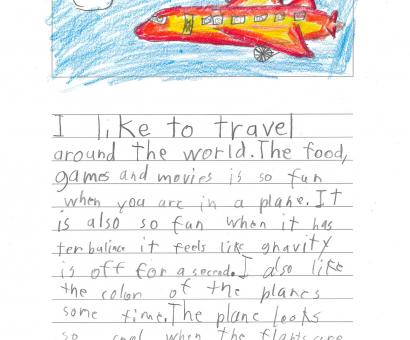 I like to travel
around the world. The food,
games and movies is so fun
when you are in a plane. It
is also so fun when it has
terbalince it feels like gravity
is off for a second. I also like
the color of the planes
some time. The plane looks
so cool when the